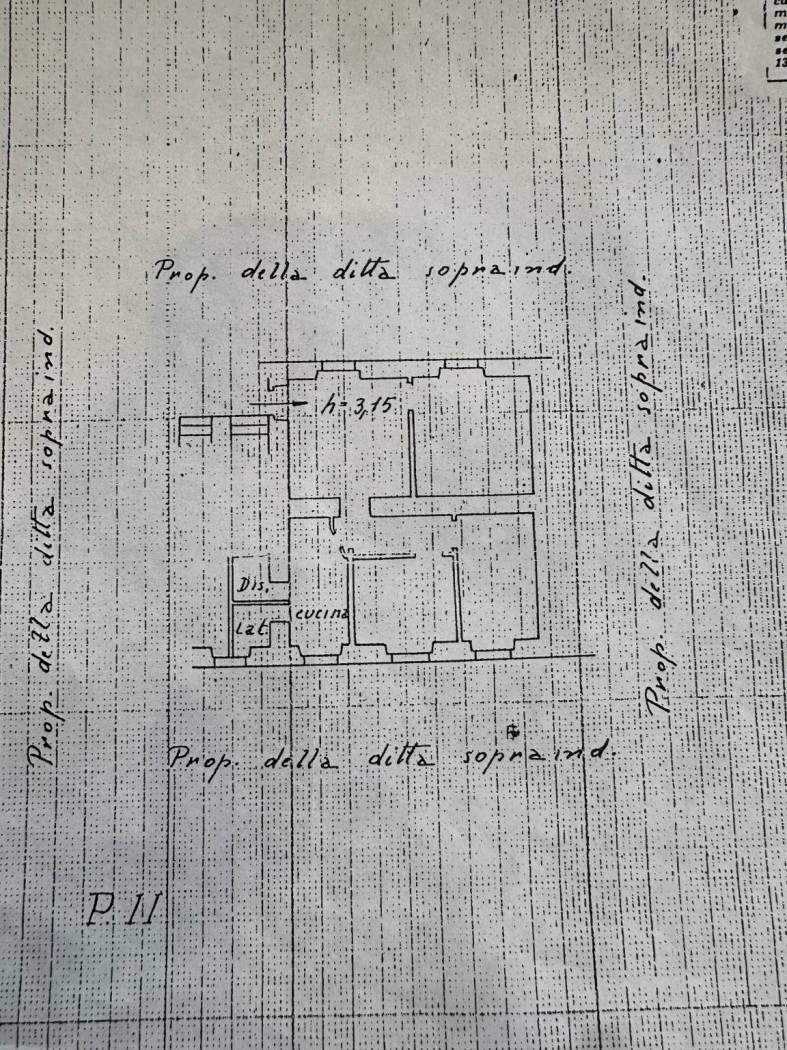 Prop. della ditta sopraind.
Prop. della ditta sopraind.
Prop. della ditta sopraind.
h=3,15
Dis.
Lat.
cucina
Prop. della ditta sopraind.
P. II
13